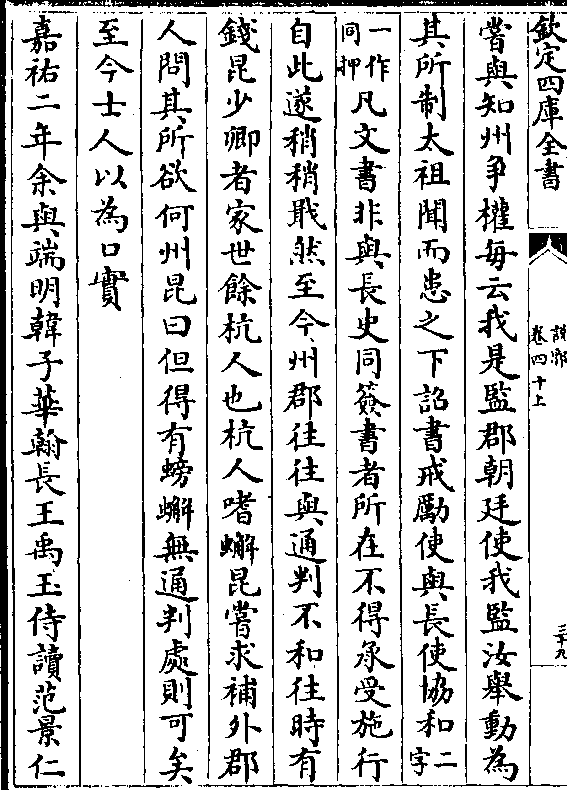 欽定四庫全書
說郛
卷四十上
三十九
嘗與知州爭權每云我是監郡朝廷使我監汝舉動為
其所制太祖聞而患之下詔書戒勵使與長使協和二字
一作同押凡文書非與長史同簽書者所在不得承受施行
自此遂稍稍戢然至今州郡往往與通判不和往時有
錢昆少卿者家世餘杭人也杭人嗜蠏昆嘗求補外郡
人問其所欲何州昆曰但得有螃蠏無通判處則可矣
至今士人以為口實
嘉祐二年余與端明韓子華翰長王禹玉侍讀范景仁